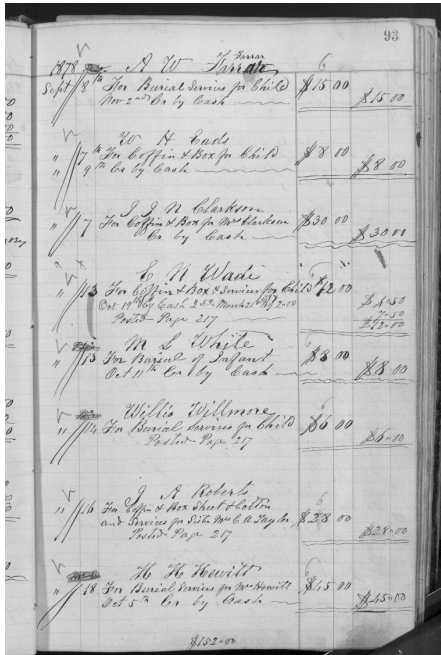 93
1878 A W Farrar Farrar 6
Sept 8th For Burial Services for Child $15 00
Nov 2nd Cr by Cash $15 00
W H Eads
" 7th For Coffin & Box for Child $8 00
" 9th Cr by Cash $8 00
J J N Clarkson
" 7 For Coffin & Box for Mr Clarkson $30 00
Cr by Cash $30 00
C N Wade
" 13 For Coffin & Box & Services for Child $12 00
Oct 19th by Cash March $4.50
Posted Page 217 7.50
$12.00
M L White
" 13 For Burial of Infant $8 00
Oct 11th Cr by Cash $8.00
Willis Willmore 6
" 14 For Burial Services for Child $6 00
Posted Page 217 $6.00
J A Roberts 6
" 16 For Coffin & Box Sheet & Cotton
and Services for Sister Mrs C A Taylor $28 00
Posted Page 217 $28.00
H H Hewitt 6
" 18 For Burial Services for Mr Hewitt $45 00
Oct 5th Cr by Cash $45.00
$152.00